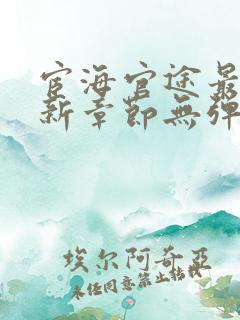 宦海官途最
新章节無弹
埃尔阿奇亚
未经同意禁止转载